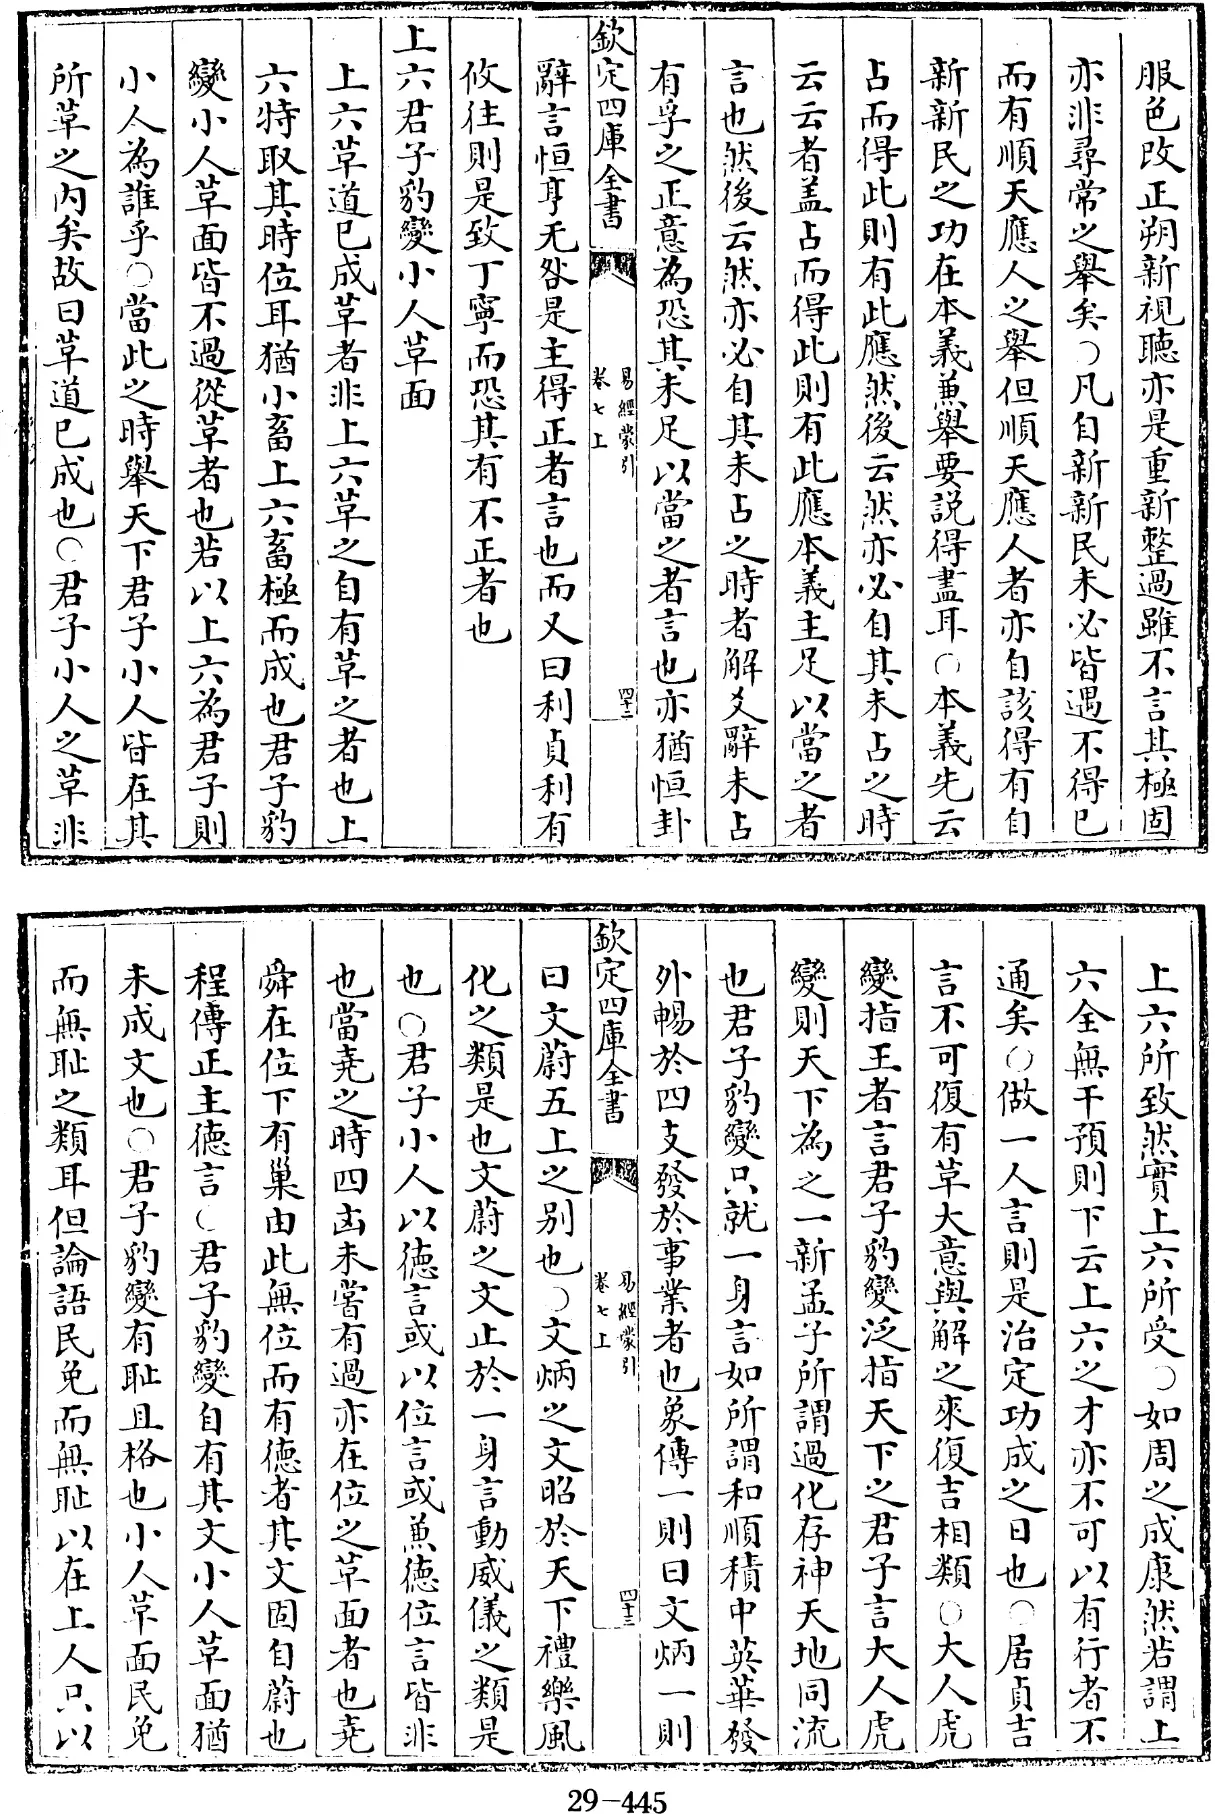 服色改正朔新視聴亦是重新整過雖不言其極固
亦非尋常之舉矣○凡自新新民未必皆遇不得已
而有順天應人之舉但順天應人者亦自該得有自
新新民之功在本義兼舉要説得盡耳○本義先云
占而得此則有此應然後云然亦必自其未占之時
云云者盖占而得此則有此應本義主足以當之者
言也然後云然亦必自其未占之時者解爻辭未占
有孚之正意為恐其未足以當之者言也亦猶恒卦
欽定四庫全書
易經蒙引
卷七上
四十二
辭言恒亨无咎是主得正者言也而又曰利貞利有
攸往則是致丁寧而恐其有不正者也
上六君子豹變小人革面
上六革道已成革者非上六革之自有革之者也上
六特取其時位耳猶小畜上六畜極而成也君子豹
變小人革面皆不過從革者也若以上六為君子則
小人為誰乎○當此之時舉天下君子小人皆在其
所革之内矣故曰革道已成也○君子小人之革非
上六所致然實上六所受○如周之成康然若謂上
六全無干預則下云上六之才亦不可以有行者不
通矣○做一人言則是治定功成之日也○居貞吉
言不可復有革大意與解之來復吉相類○大人虎
變指王者言君子豹變泛指天下之君子言大人虎
變則天下為之一新孟子所謂過化存神天地同流
也君子豹變只就一身言如所謂和順積中英華發
外暢於四支發於事業者也象傳一則曰文炳一則
欽定四庫全書
易經蒙引
卷七上
四十三
曰文蔚五上之别也○文炳之文昭於天下禮樂風
化之類是也文蔚之文止於一身言動威儀之類是
也○君子小人以德言或以位言或兼德位言皆非
也當堯之時四凶未嘗有過亦在位之革面者也堯
舜在位下有巢由此無位而有德者其文固自蔚也
程傳正主德言○君子豹變自有其文小人革面猶
未成文也○君子豹變有耻且格也小人革面民免
而無耻之類耳但論語民免而無耻以在上人只以
29-445